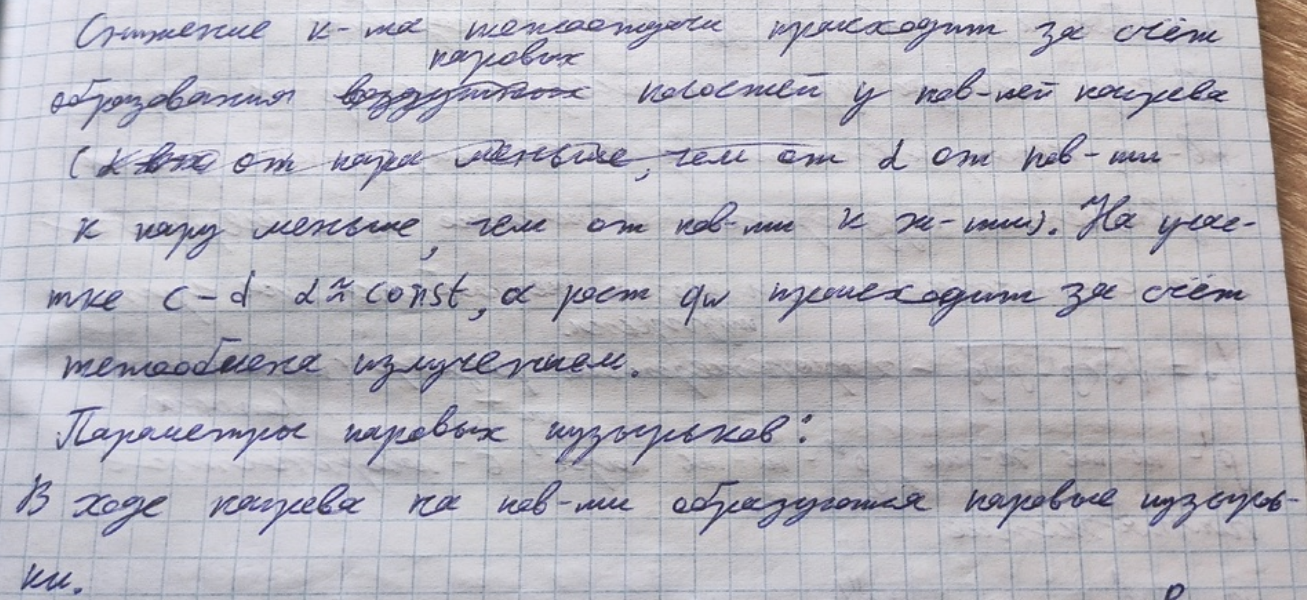 Снижение к-та теплоотдачи происходит за счёт
паровых
образования воздушных полостей у пов-ней нагрева
(α от пара меньше, чем от α от пов-ти
к пару меньше, чем от пов-ти к ж-ти). На учас-
тке c-d α ≈ const, а рост qw происходит за счёт
теплообмена излучением.
Параметры паровых пузырьков:
В ходе нагрева на пов-ти образуются паровые пузырь-
ки.